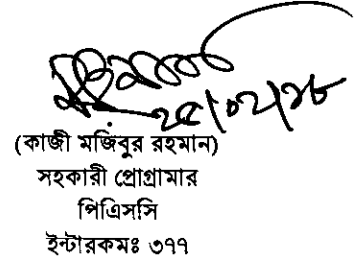 (কাজী মজিবুর রহমান)
সহকারী প্রোগ্রামার
পিএিসসি
ইন্টারকমঃ ৩৭৭